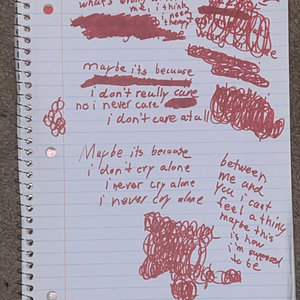 what's wrong
me, i think
i need
maybe its because
i don't really care
no i never care
i don't care at all
Maybe its because
i don't cry alone
i never cry alone
i never cry alone
between
me and
you i cant
feel a thing
maybe this
is how
i'm supposed
to be